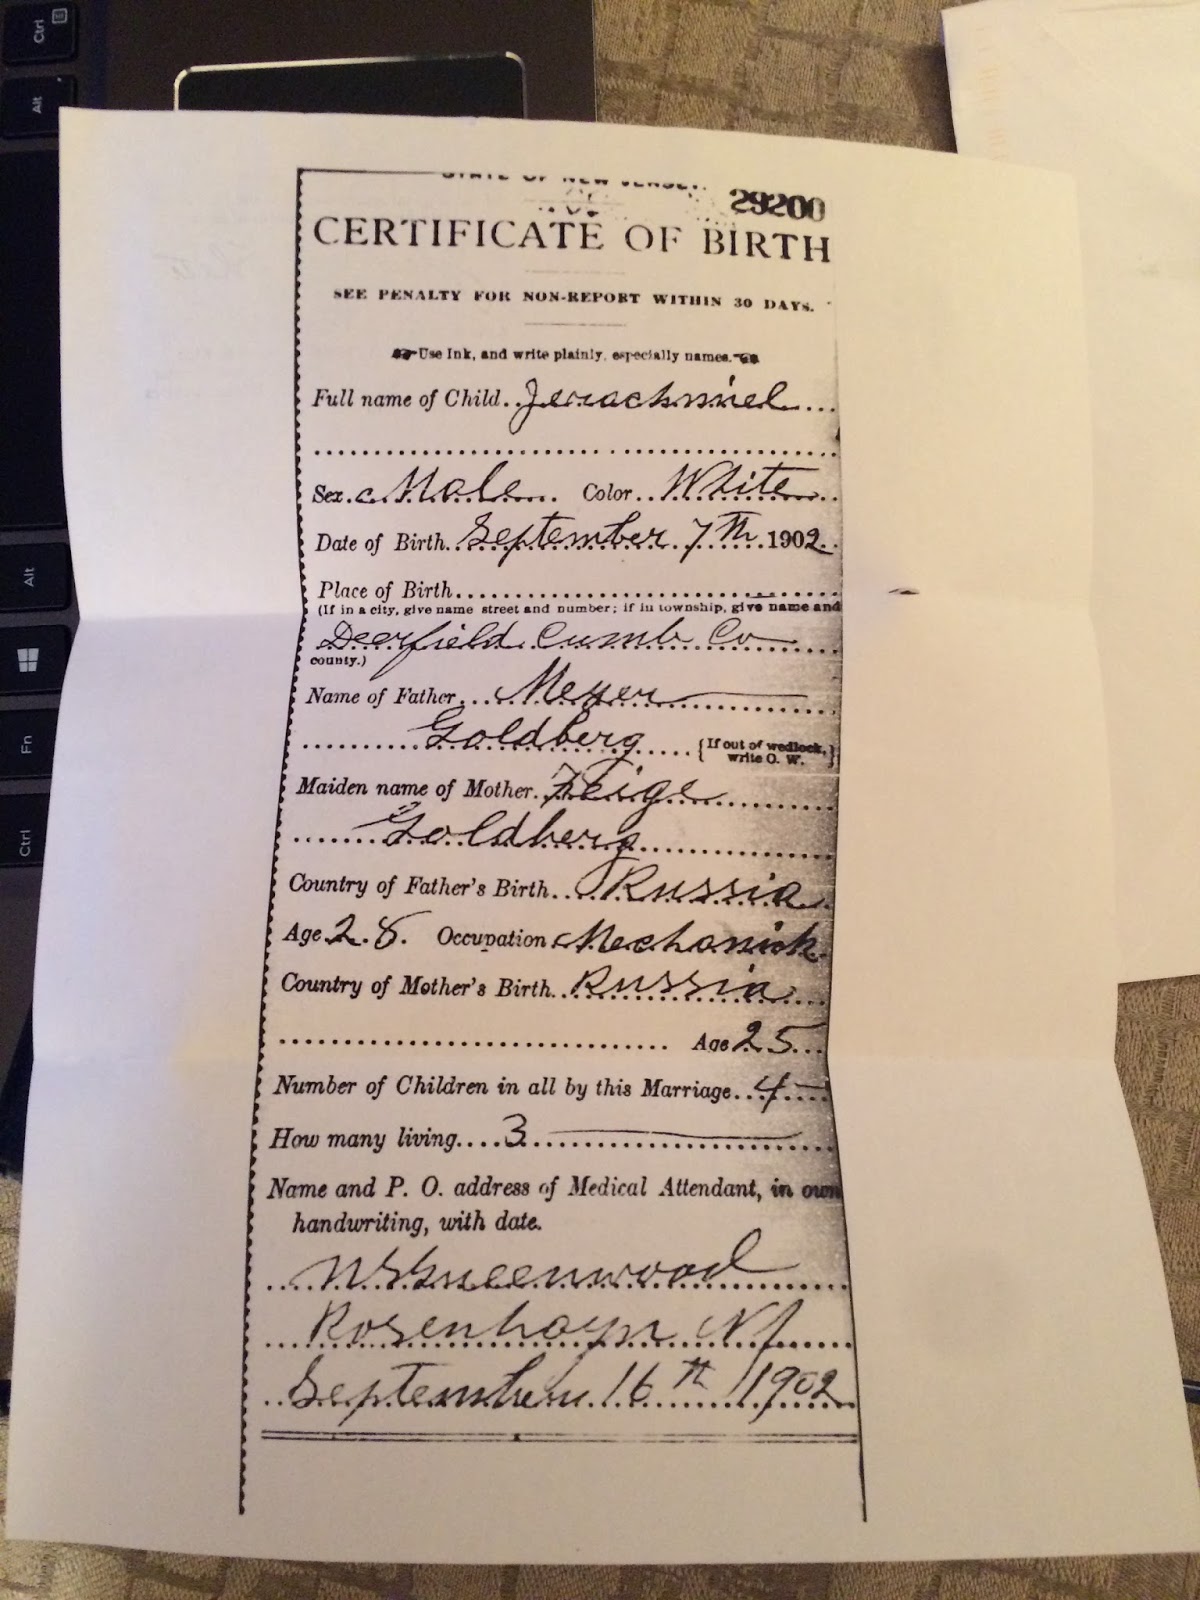 Ctrl
Alt
Alt
Fn
Ctrl
STATE OF NEW JERSEY.
29200
CERTIFICATE OF BIRTH
SEE PENALTY FOR NON-REPORT WITHIN 30 DAYS.
Use Ink, and write plainly, especially names.
Full name of Child Jerachmiel
Sex Male Color White
Date of Birth September 7th 1902
Place of Birth
(If in a city, give name street and number; if in township, give name and
Deerfield Cumb Co
county.)
Name of Father Meyer
Goldberg {If out of wedlock, write O. W.}
Maiden name of Mother Feige
Goldberg
Country of Father's Birth Russia
Age 28. Occupation Mechanick
Country of Mother's Birth Russia
Age 25
Number of Children in all by this Marriage 4
How many living 3
Name and P. O. address of Medical Attendant, in own
handwriting, with date.
Greenwood
Rosenhayn NJ
September 16th 1902